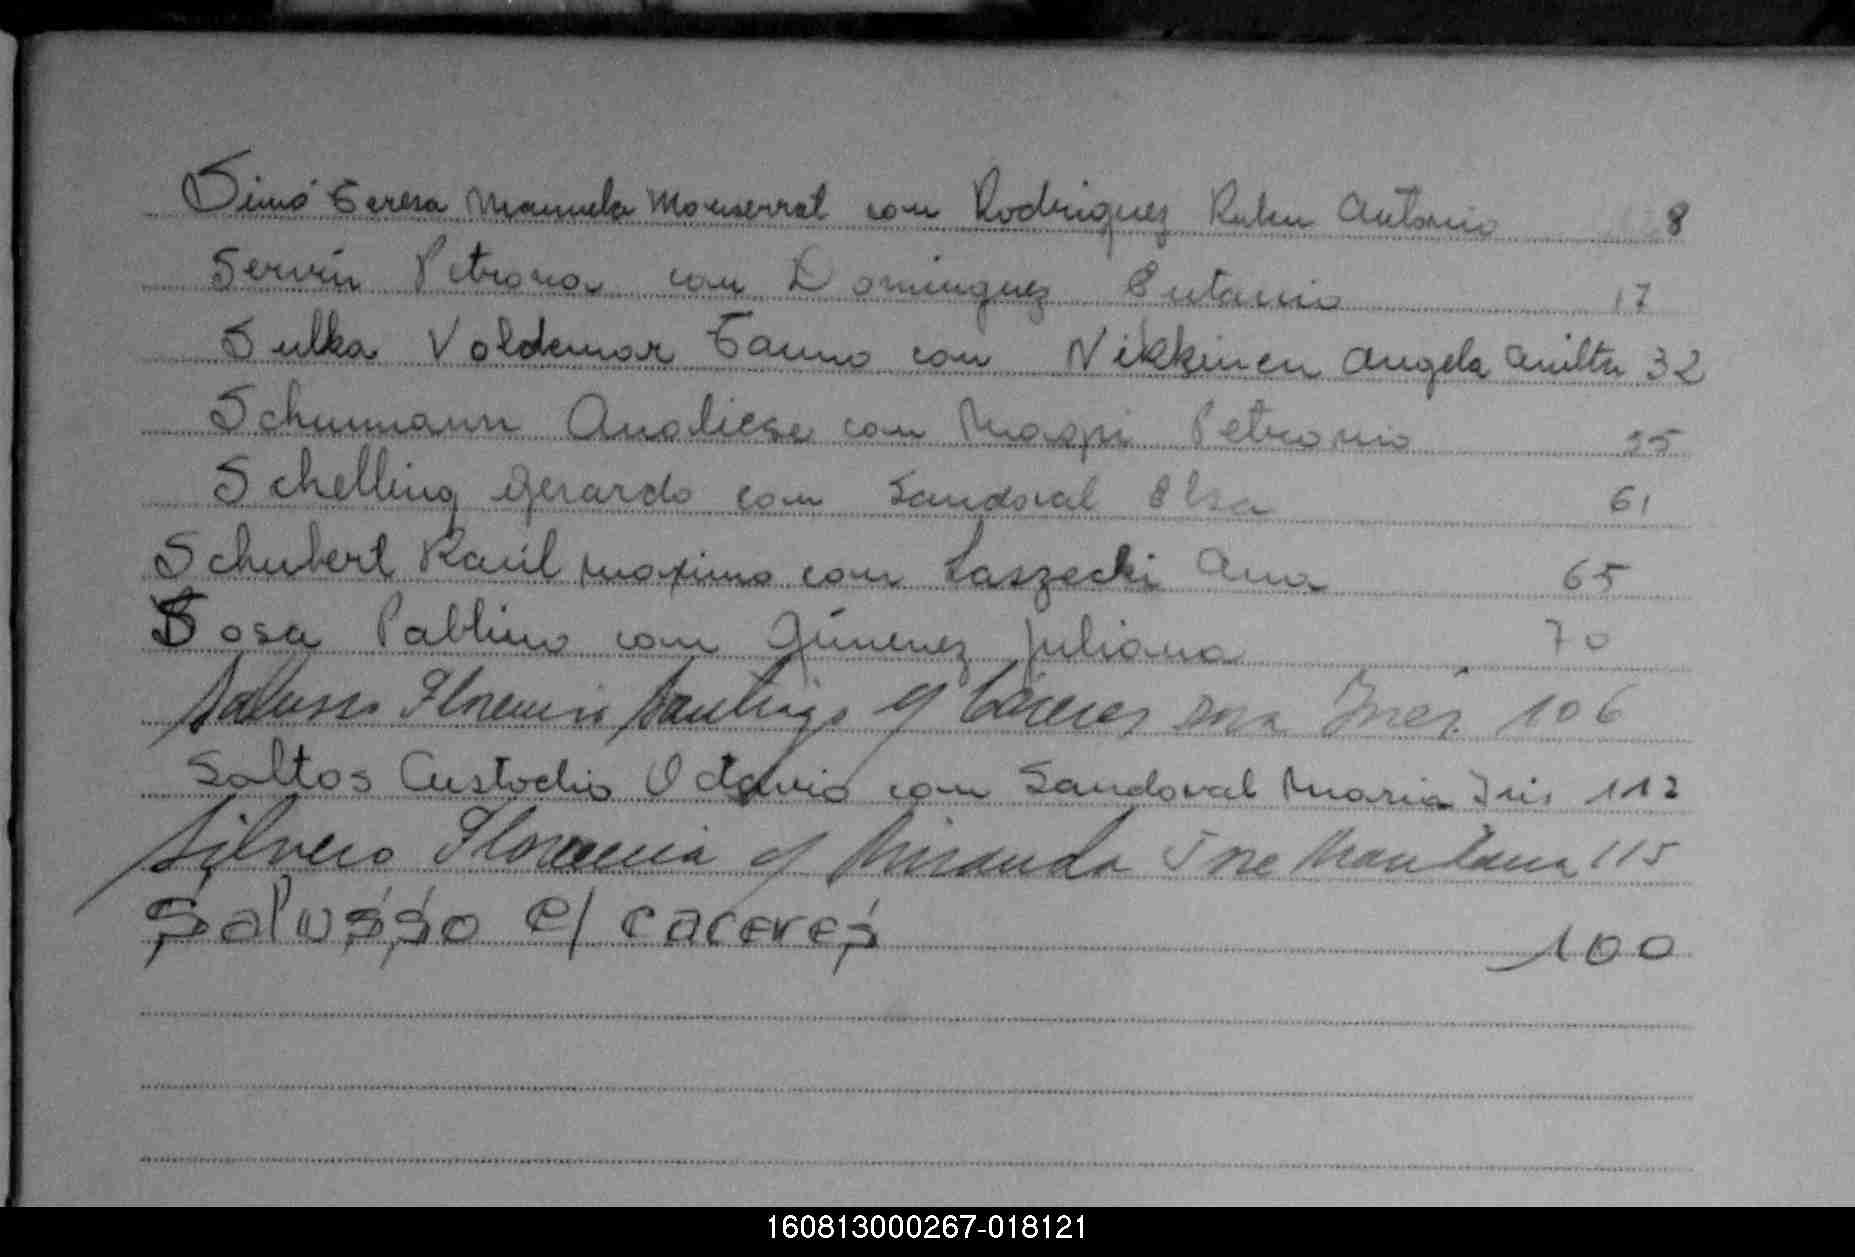 Simó Teresa Manuela Monserrat con Rodriguez Ruben Antonio 8
Servín Petrona con Dominguez Eutacio 17
Sulka Voldemar Tauno con Nikkinen Angela 32
Schumann Analiese con Petronio 55
Schelling Gerardo con Sandoval Elsa 61
Schubert Raúl Maximo con Laszecki Ana 65
Sosa Pablino con Gimenez Juliana 70
Salusso Florencio Santiago c/ Cáceres Rosa Inés. 106
Saltos Custodio Octavio con Sandoval Maria Iris 112
Silvero Florencia c/ Miranda Jose 115
Salusso c/ caceres 100
160813000267-018121